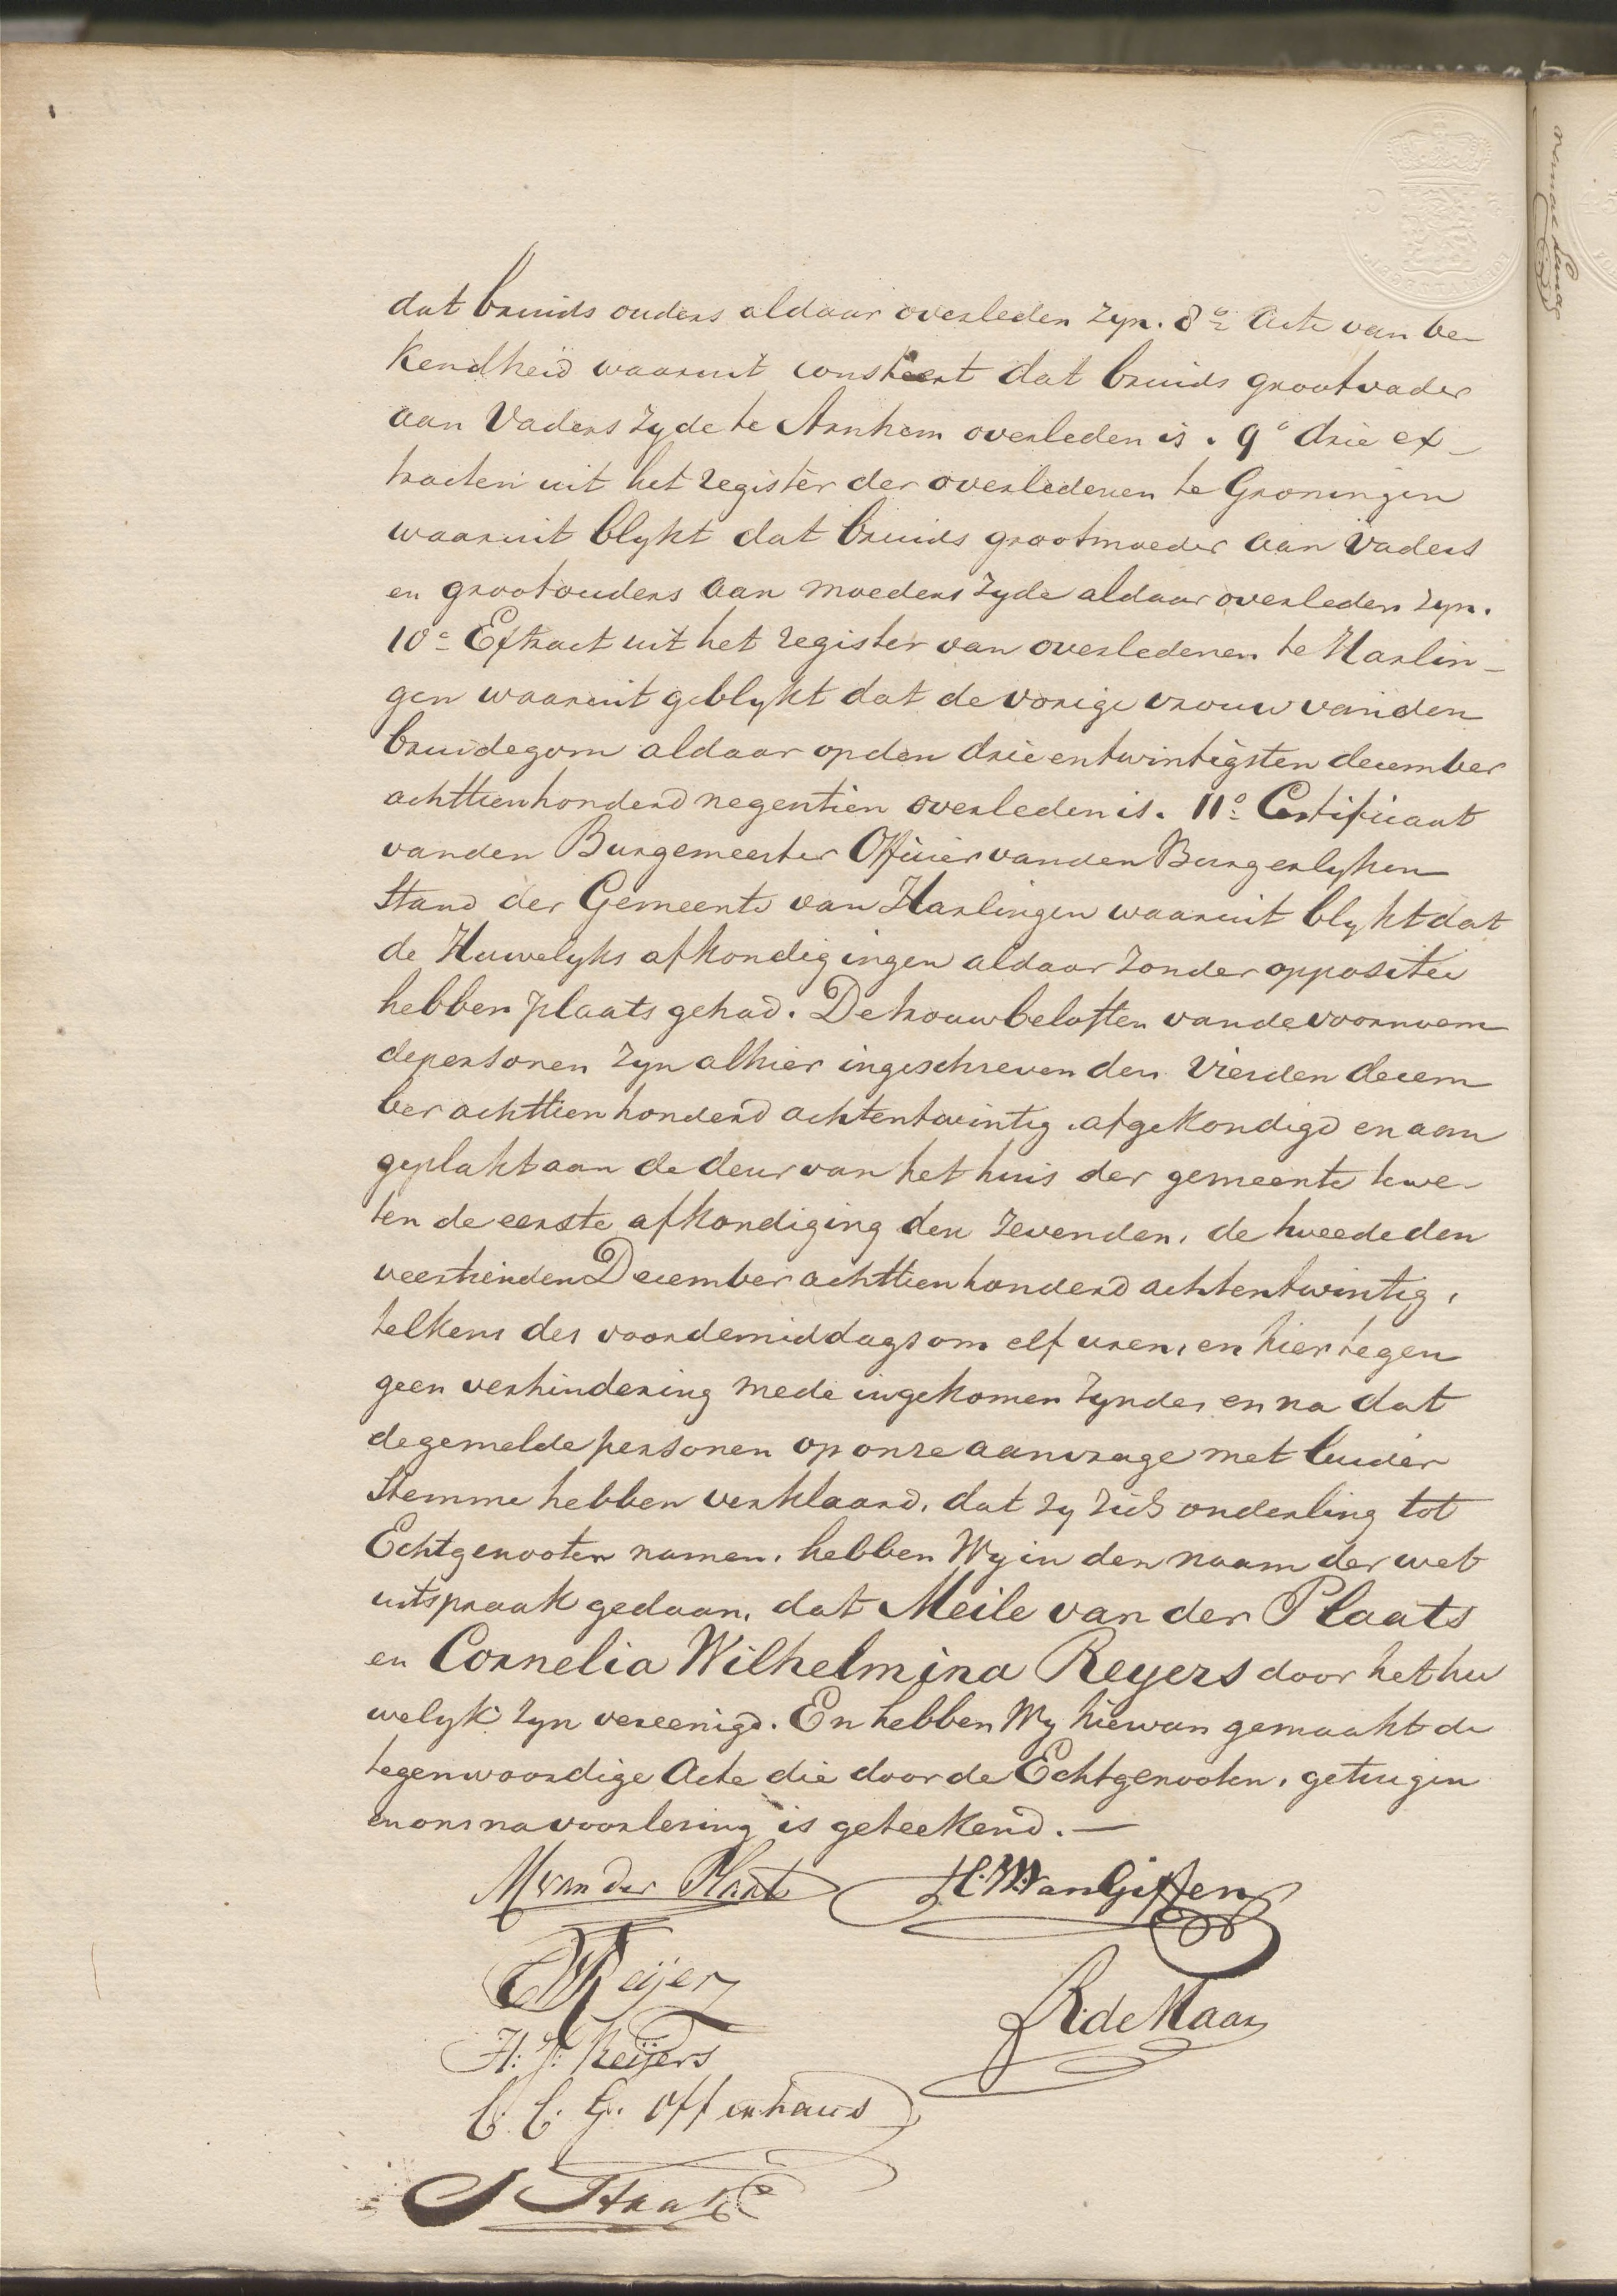 dat bruids ouders aldaar overleden zyn. 8º Acte van be-
kendheid waaruit consteert dat bruids grootvader
aan Vaders zyde te Arnhem overleden is. 9º drie ex-
tracten uit het register der overledenen te Groningen
waaruit blykt dat bruids grootmoeder aan vaders
en grootouders aan moeders zyde aldaar overleden zyn.
10º Extract uit het register van overledenen te Harlin-
gen waaruit geblykt dat de vorige vrouw van den
bruidegom aldaar op den drie entwintigsten december
achttienhonderd negentien overleden is. 11º Certificaat
van den Burgemeester Officier van den Burgerlyken
Stand der Gemeente van Harlingen waaruit blykt dat
de Huwelyks afkondigingen aldaar zonder oppositie
hebben plaats gehad. De trouwbeloften van de voornoem
de personen zyn alhier ingeschreven den vierden decem
ber achttienhonderd achtentwintig, afgekondigd en aan
geplakt aan de deur van het huis der gemeente te we-
ten de eerste afkondiging den zevenden, de tweede den
veertienden December achttienhonderd achtentwintig,
telkens des voordemiddags om elf uren, en hier tegen
geen verhindering mede ingekomen zynde, en na dat
de gemelde personen op onze aanvrage met luider
Stemme hebben verklaard, dat zy zich onderling tot
Echtgenooten namen, hebben Wy in den naam der wet
uitspraak gedaan, dat Meile van der Plaats
en Cornelia Wilhelmina Reyers door het hu
welyk zyn vereenigd. En hebben Wy hiervan gemaakt de
tegenwoordige Acte die door de Echtgenooten, getuigen
en ons na voorlezing is geteekend. —
M van der Plaats H. W. van Giffen
CW Reijers
R. de Maar
H: J: Reijers
C. C. G. Offenhaus